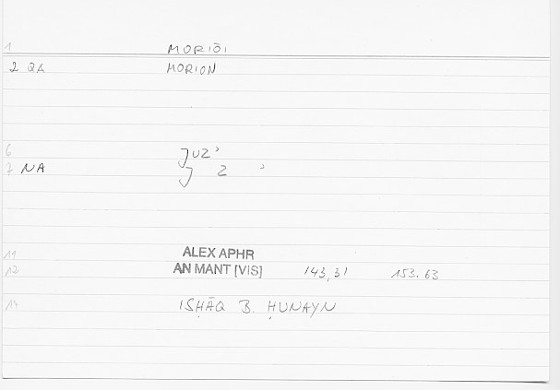 1 MORIŌI
2 QA MORION
6 JUZʾ
7 NA J Z ʾ
11 ALEX APHR
13 AN MANT [VIS] 143,31 153.63
14 ISḤĀQ B. ḤUNAYN